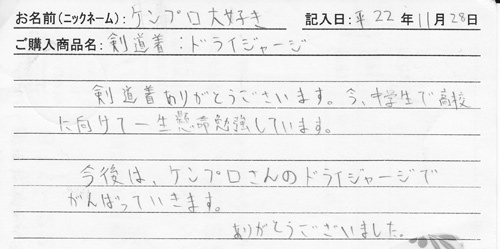 お名前(ニックネーム):ケンプロ大好き 記入日:平22年11月28日
ご購入商品名:剣道着:ドライジャージ
剣道着ありがとうございます。今、中学生で高校
に向けて一生懸命勉強しています。
今後は、ケンプロさんのドライジャージで
がんばっていきます。
ありがとうございました。